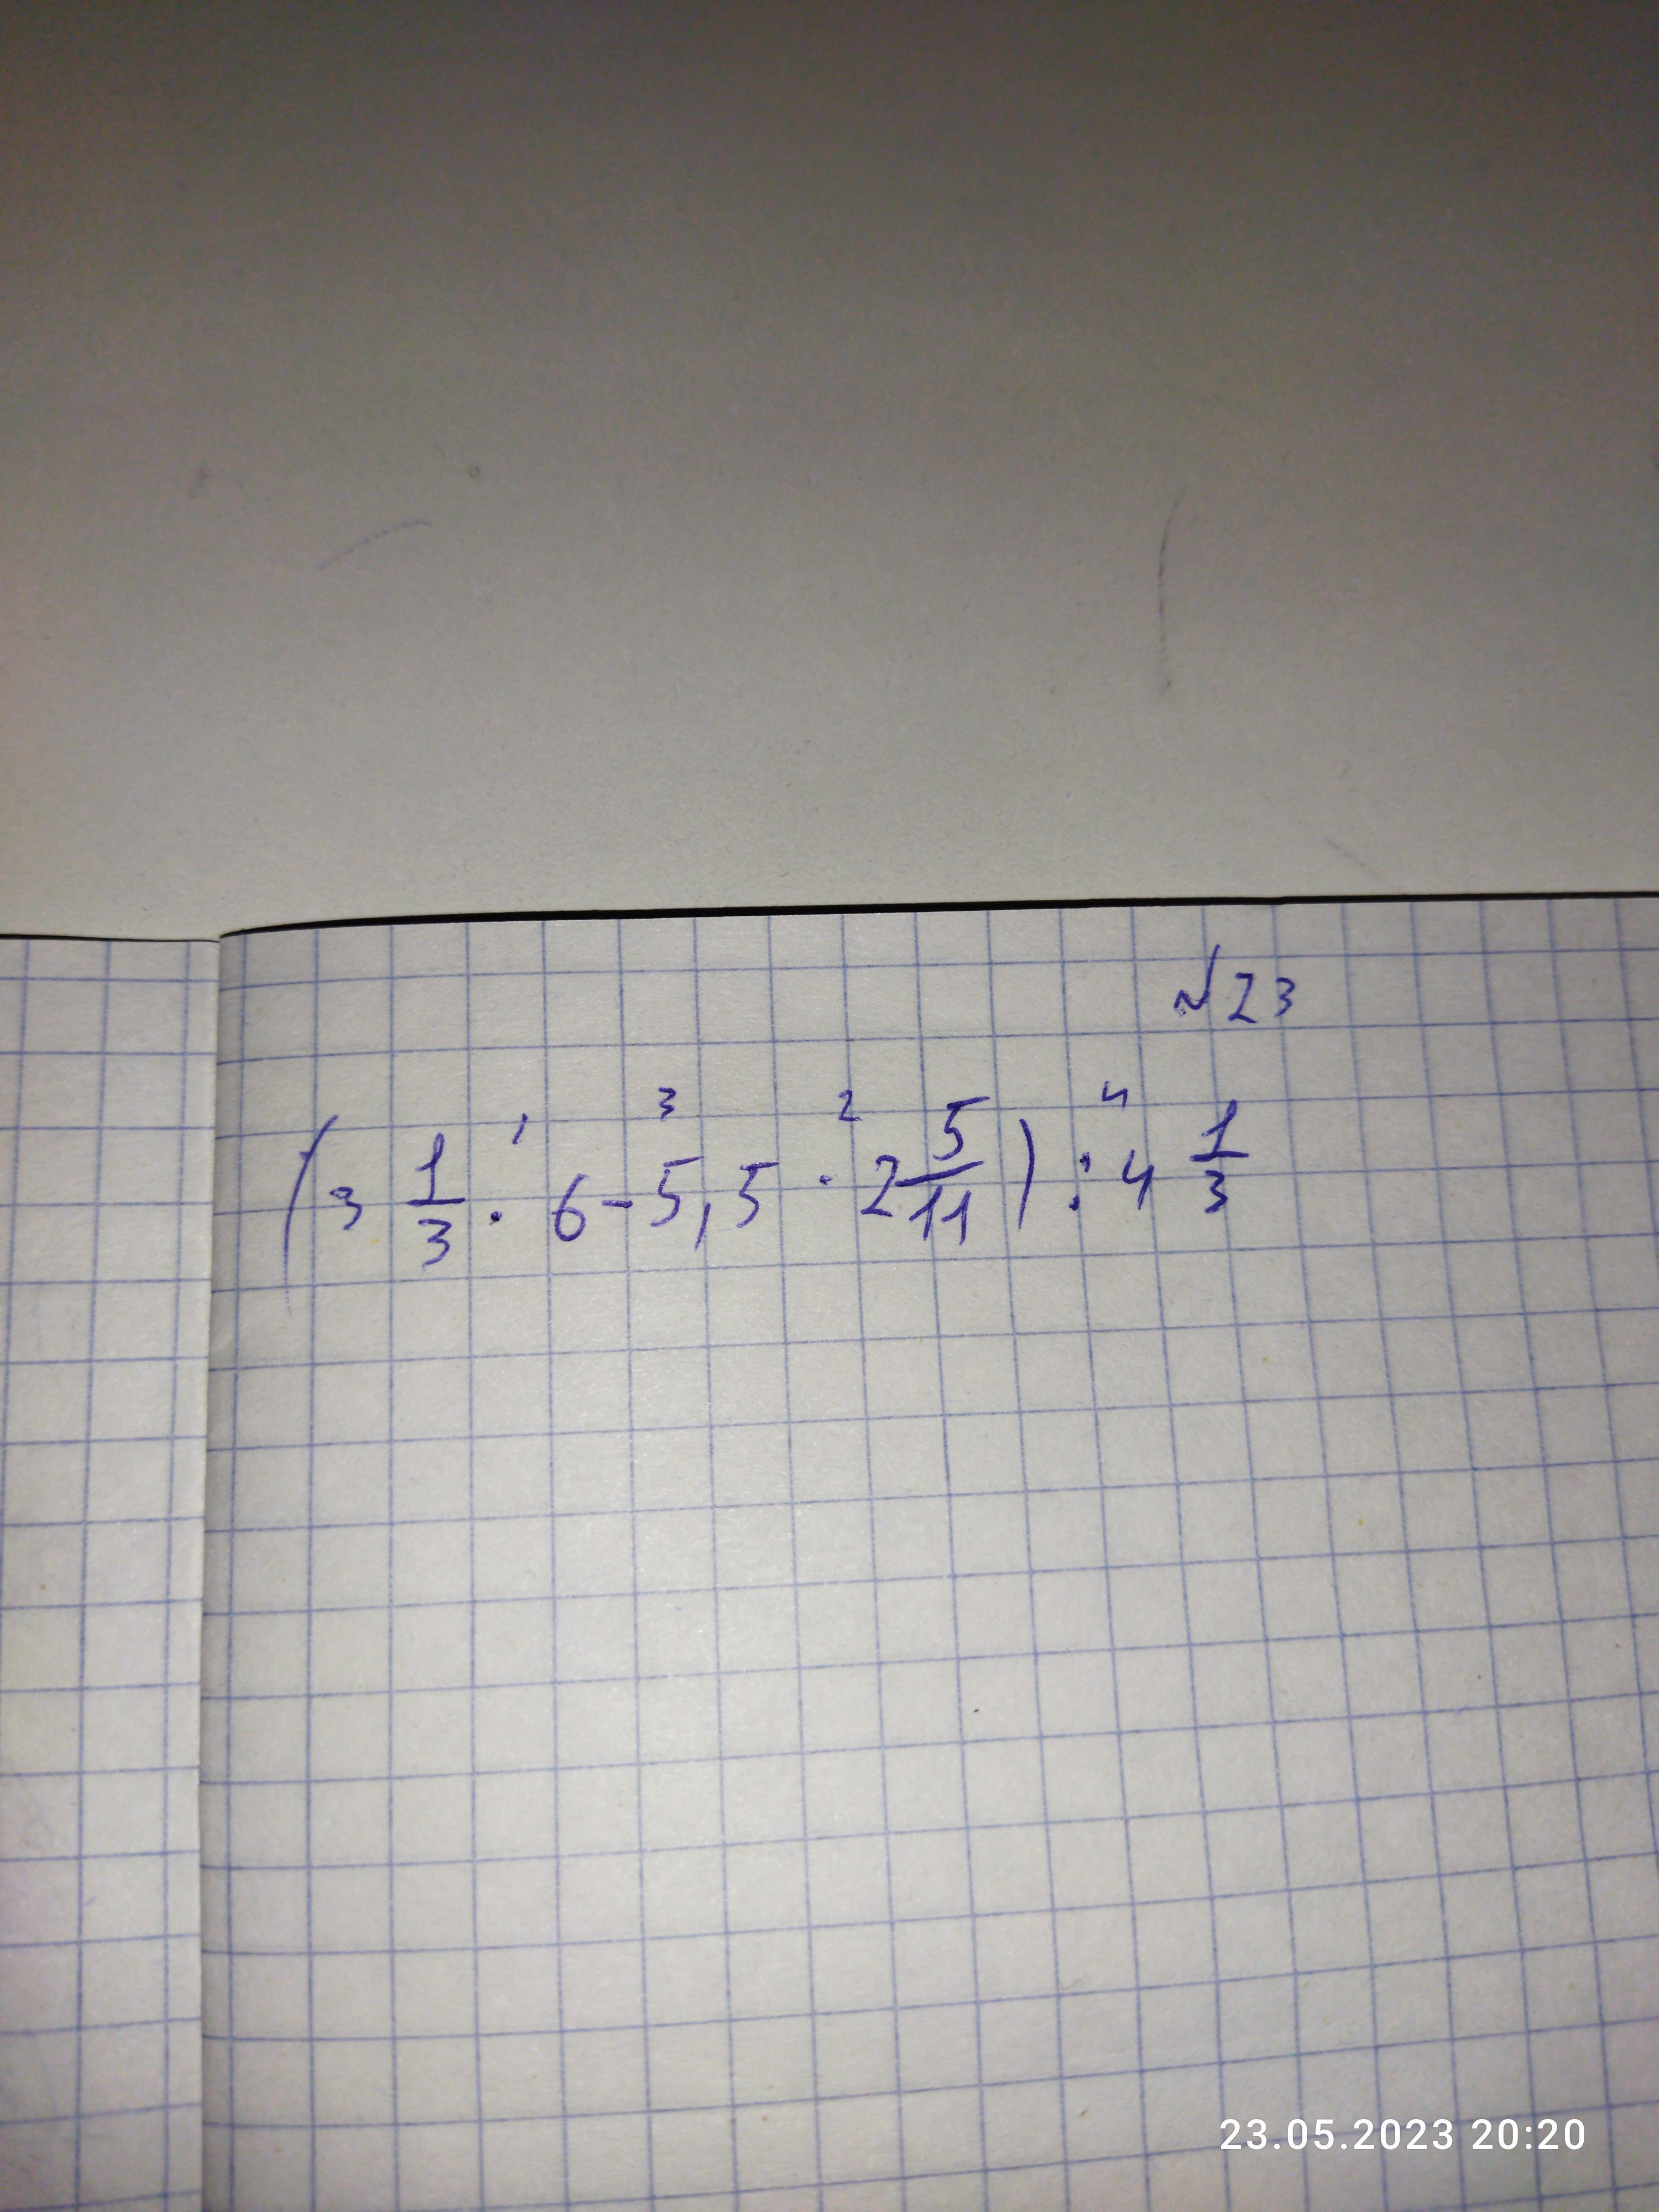 №23
1 3 2 4
(3 1/3 · 6 - 5,5 · 2 5/11) : 4 1/3
23.05.2023 20:20